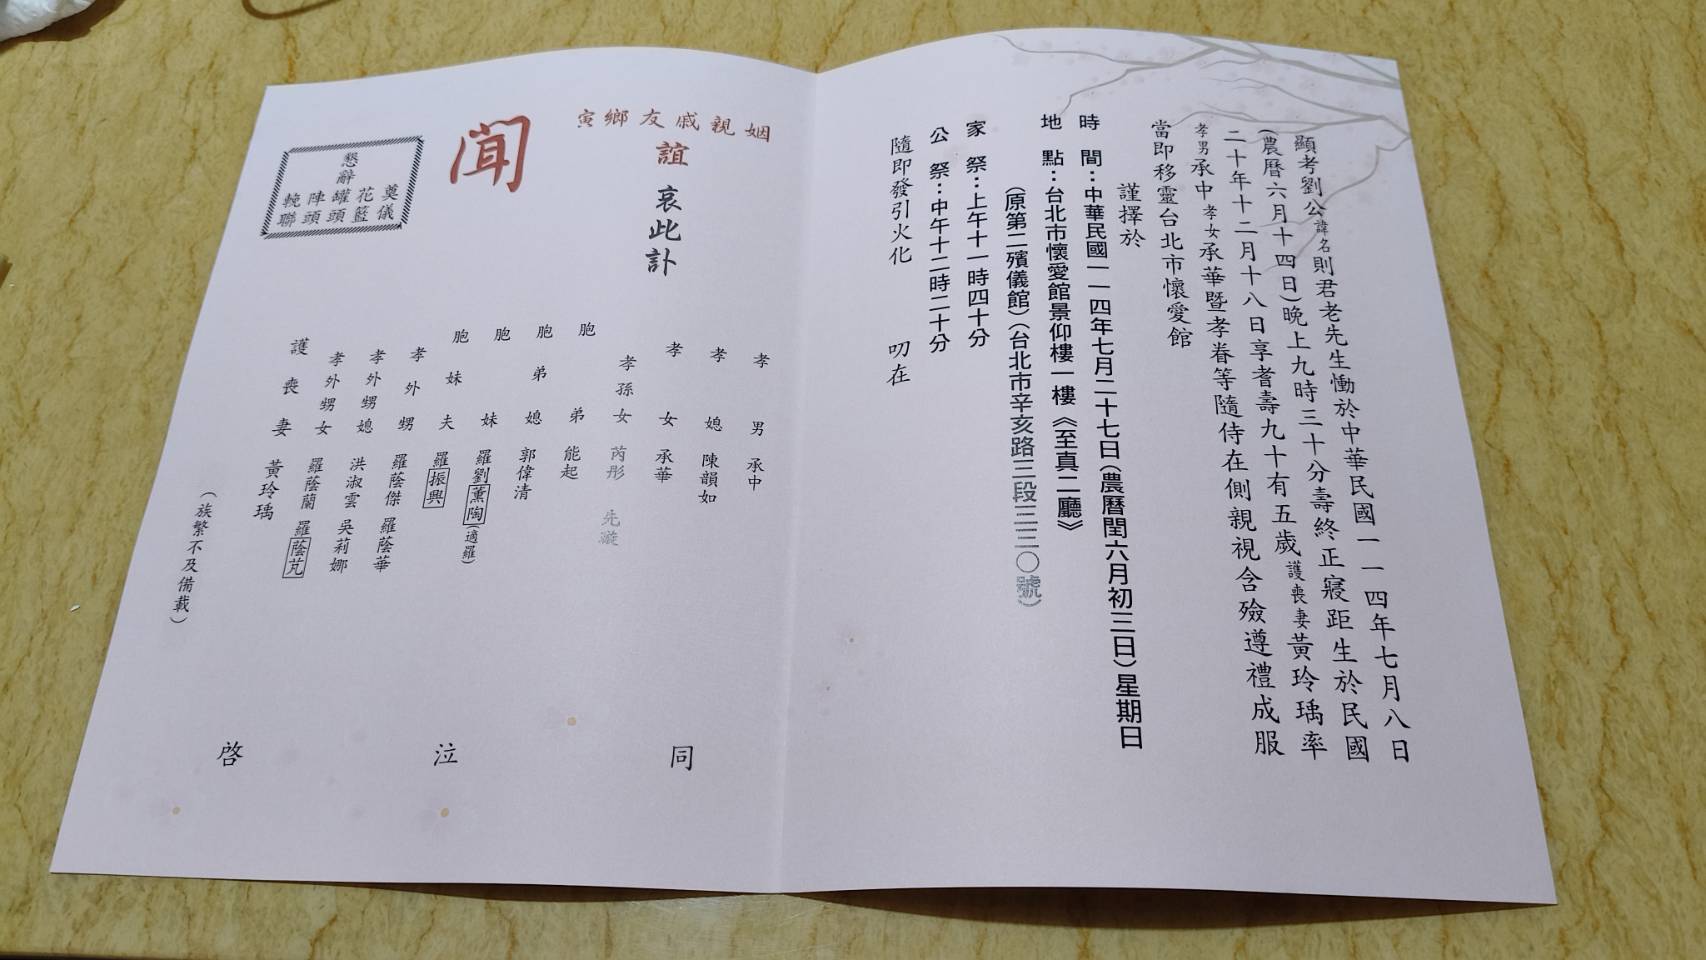 顯考劉公諱名則君老先生慟於中華民國一一四年七月八日
(農曆六月十四日)晚上九時三十分壽終正寢距生於民國
二十年十二月十八日享耆壽九十有五歲護喪妻黃玲瑀率
孝男承中孝女承華暨孝眷等隨侍在側親視含殮遵禮成服
當即移靈台北市懷愛館
謹擇於
時間：中華民國一一四年七月二十七日(農曆閏六月初三日)星期日
地點：台北市懷愛館景仰樓一樓《至真二廳》
(原第二殯儀館)(台北市辛亥路三段三三〇號)
家祭：上午十一時四十分
公祭：中午十二時二十分
隨即發引火化 叨在
姻親戚友鄉寅
誼 哀此訃
聞
懇辭
奠儀
花籃
罐頭
陣頭
輓聯
孝男 承中
孝媳 陳韻如
孝女 承華
孝孫女 芮彤 先漩
胞弟 能起
胞弟媳 郭偉清
胞妹 羅劉薰陶(適羅)
胞妹夫 羅振興
孝外甥 羅蔭傑 羅蔭華
孝外甥媳 洪淑雲 吳莉娜
孝外甥女 羅蔭蘭 羅蔭芃
護喪妻 黃玲瑀
(族繁不及備載)
同泣啓